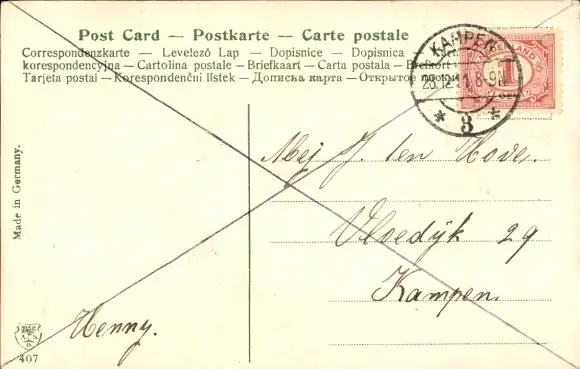 Post Card – Postkarte – Carte postale
Correspondenzkarte – Levelező Lap – Dopisnice – Dopisnica
korespondencyjna – Cartolina postale – Briefkaart – Carta postala –
Tarjeta postal – Korespondenční lístek – Дописна карта – Открытое
KAMPEN
8-9N
3
NEDERLAND
1
Made in Germany.
Mej J. ten Hove.
Vloedijk 29
Kampen.
Henny.
407